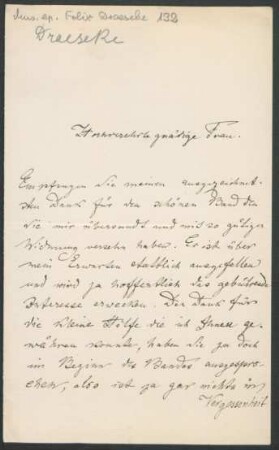 Mus. ep. Felix Draeseke 132
Draeseke
Hochverehrte gnädige Frau.
Empfangen Sie meinen ausgezeichnet-
sten Dank für den schönen Band den
Sie mir übersandt und mit so gütiger
Widmung versehn haben. Er ist über
mein Erwarten stattlich ausgefallen
und wird ja hoffentlich das gebührende
Interesse erwecken. Den Dank für
die kleine Hilfe die ich Ihnen ge-
währen konnte, haben Sie ja doch
im Beginn des Bandes ausgespro-
chen, also ist ja gar nichts in
Vergessenheit